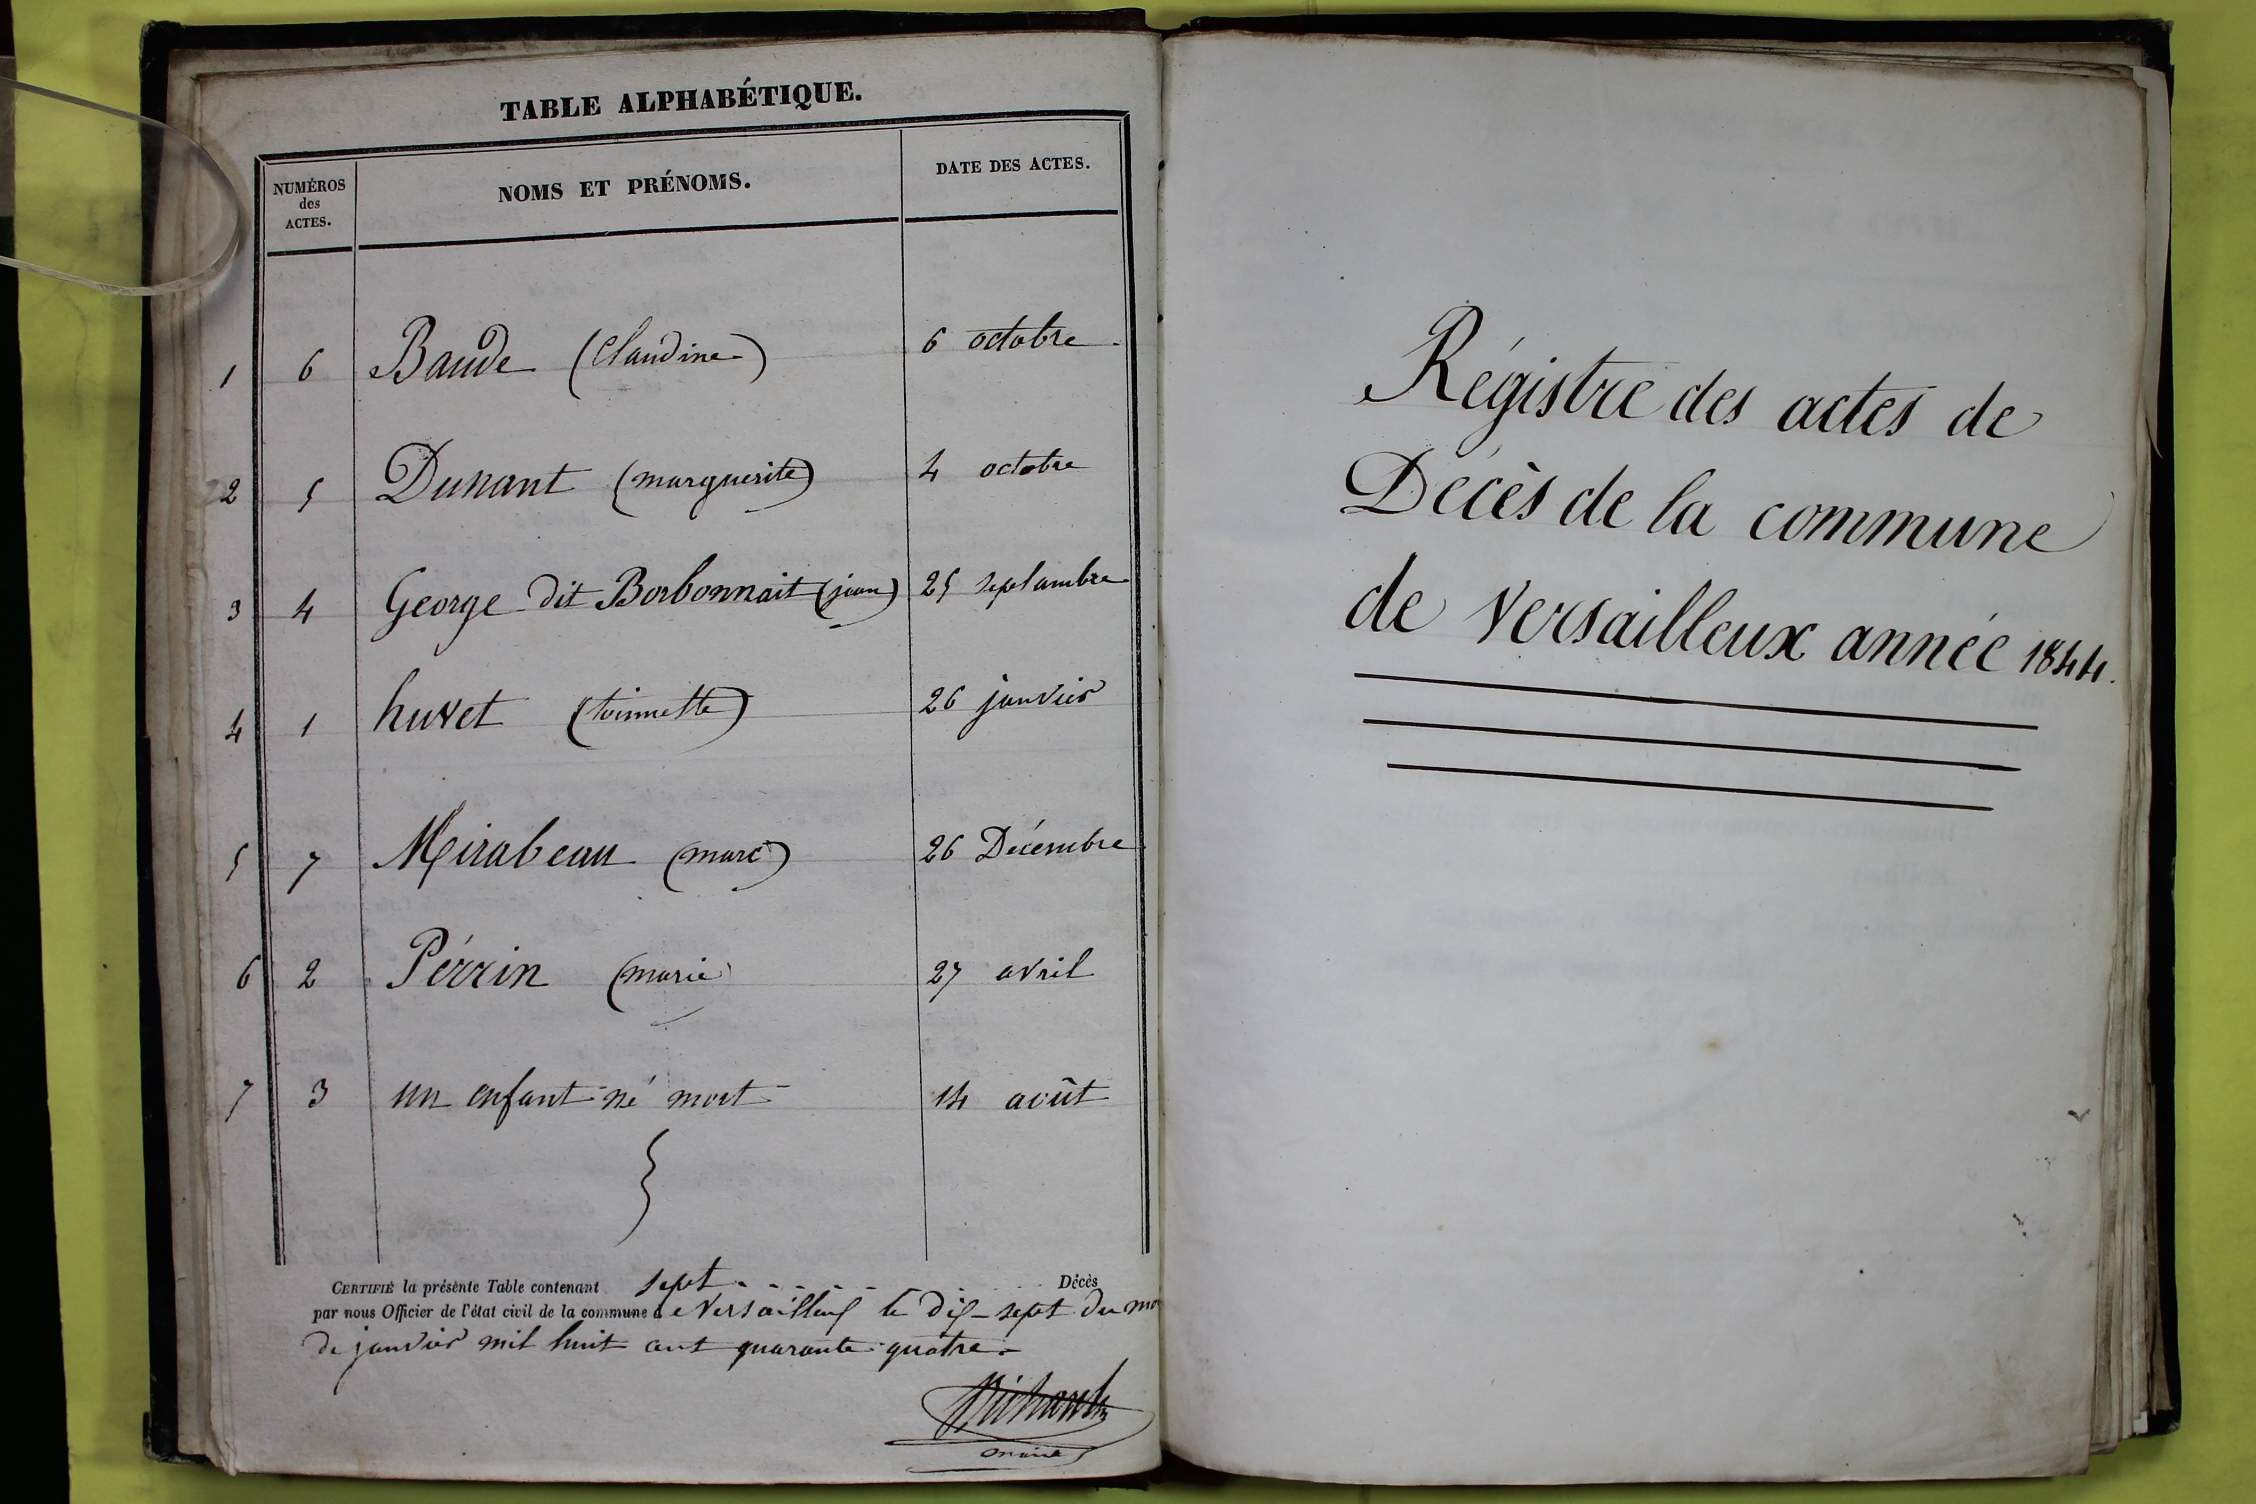 TABLE ALPHABÉTIQUE.
NUMÉROS
des
ACTES.
NOMS ET PRÉNOMS.
DATE DES ACTES.
1 6 Baude (Claudine) 6 octobre
2 5 Dunant (marguerite) 4 octobre
3 4 George dit Borbonnait (jean) 25 septambre
4 1 huvet (toinnette) 26 janvier
5 7 Mirabeau (marc) 26 Décembre
6 2 Pérrin (marie) 27 avril
7 3 un enfant né mort 14 août
CERTIFIÉ la présente Table contenant sept Décès
par nous Officier de l'état civil de la commune de Versailleux le dix-sept du mo
de janvier mil huit cent quarante quatre.
maire
Régistre des actes de
Décès de la commune
de Versailleux année 1844.